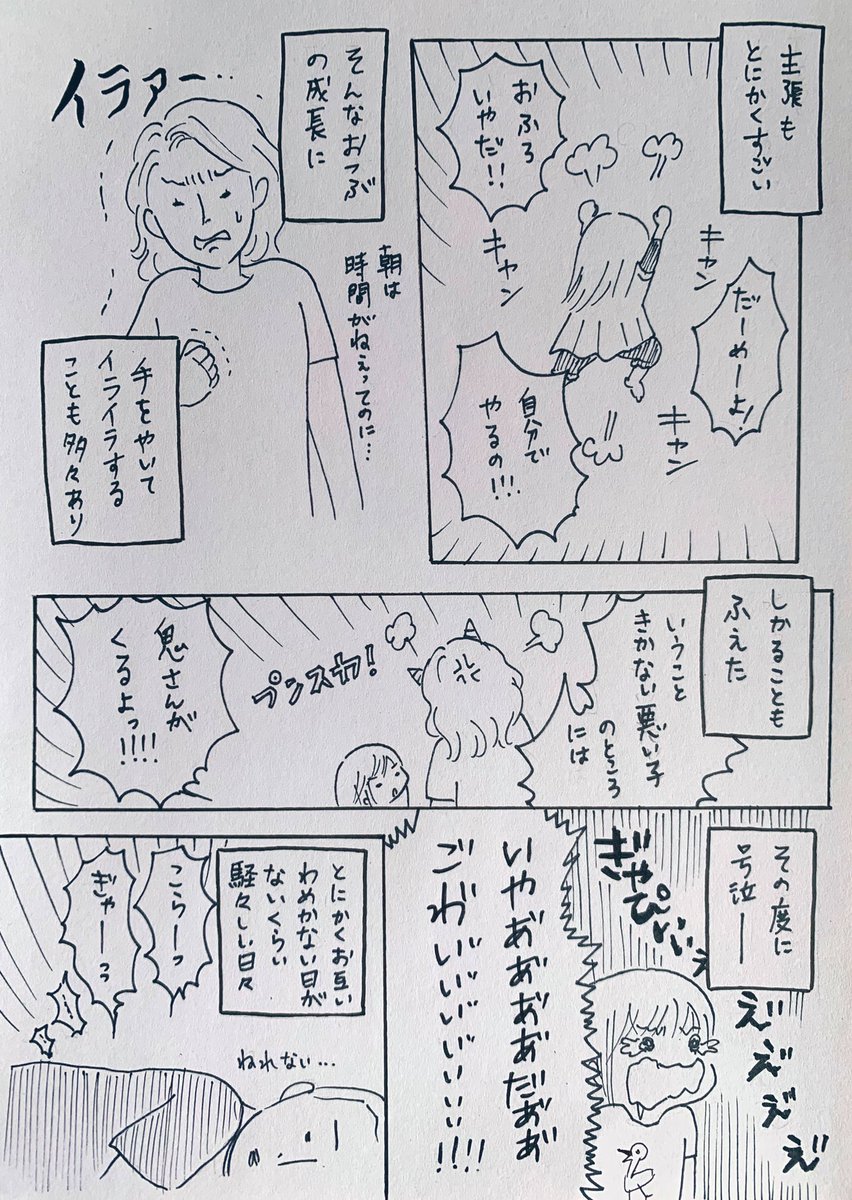 主張も
とにかくすごい
おふろ
いやだ!!
キャン
キャン
だーめーよ!
キャン
自分で
やるの!!!
そんなおつぶ
の成長に
イラァー…
朝は
時間がねぇってのに…
手をやいて
イライラする
ことも多々あり
しかることも
ふえた
いうこと
きかない悪い子
のところ
には
プンスカ!
鬼さんが
くるよっ!!!!
その度に
号泣ー
ぎゃぴぃぃぇ
ぇぇぇぇ
いやぁぁぁぁだぁぁ
ごわいいいいいい!!!!
とにかくお互い
わめかない日が
ないくらい
騒々しい日々
こらーっ
ぎゃーっっ
ねれない…